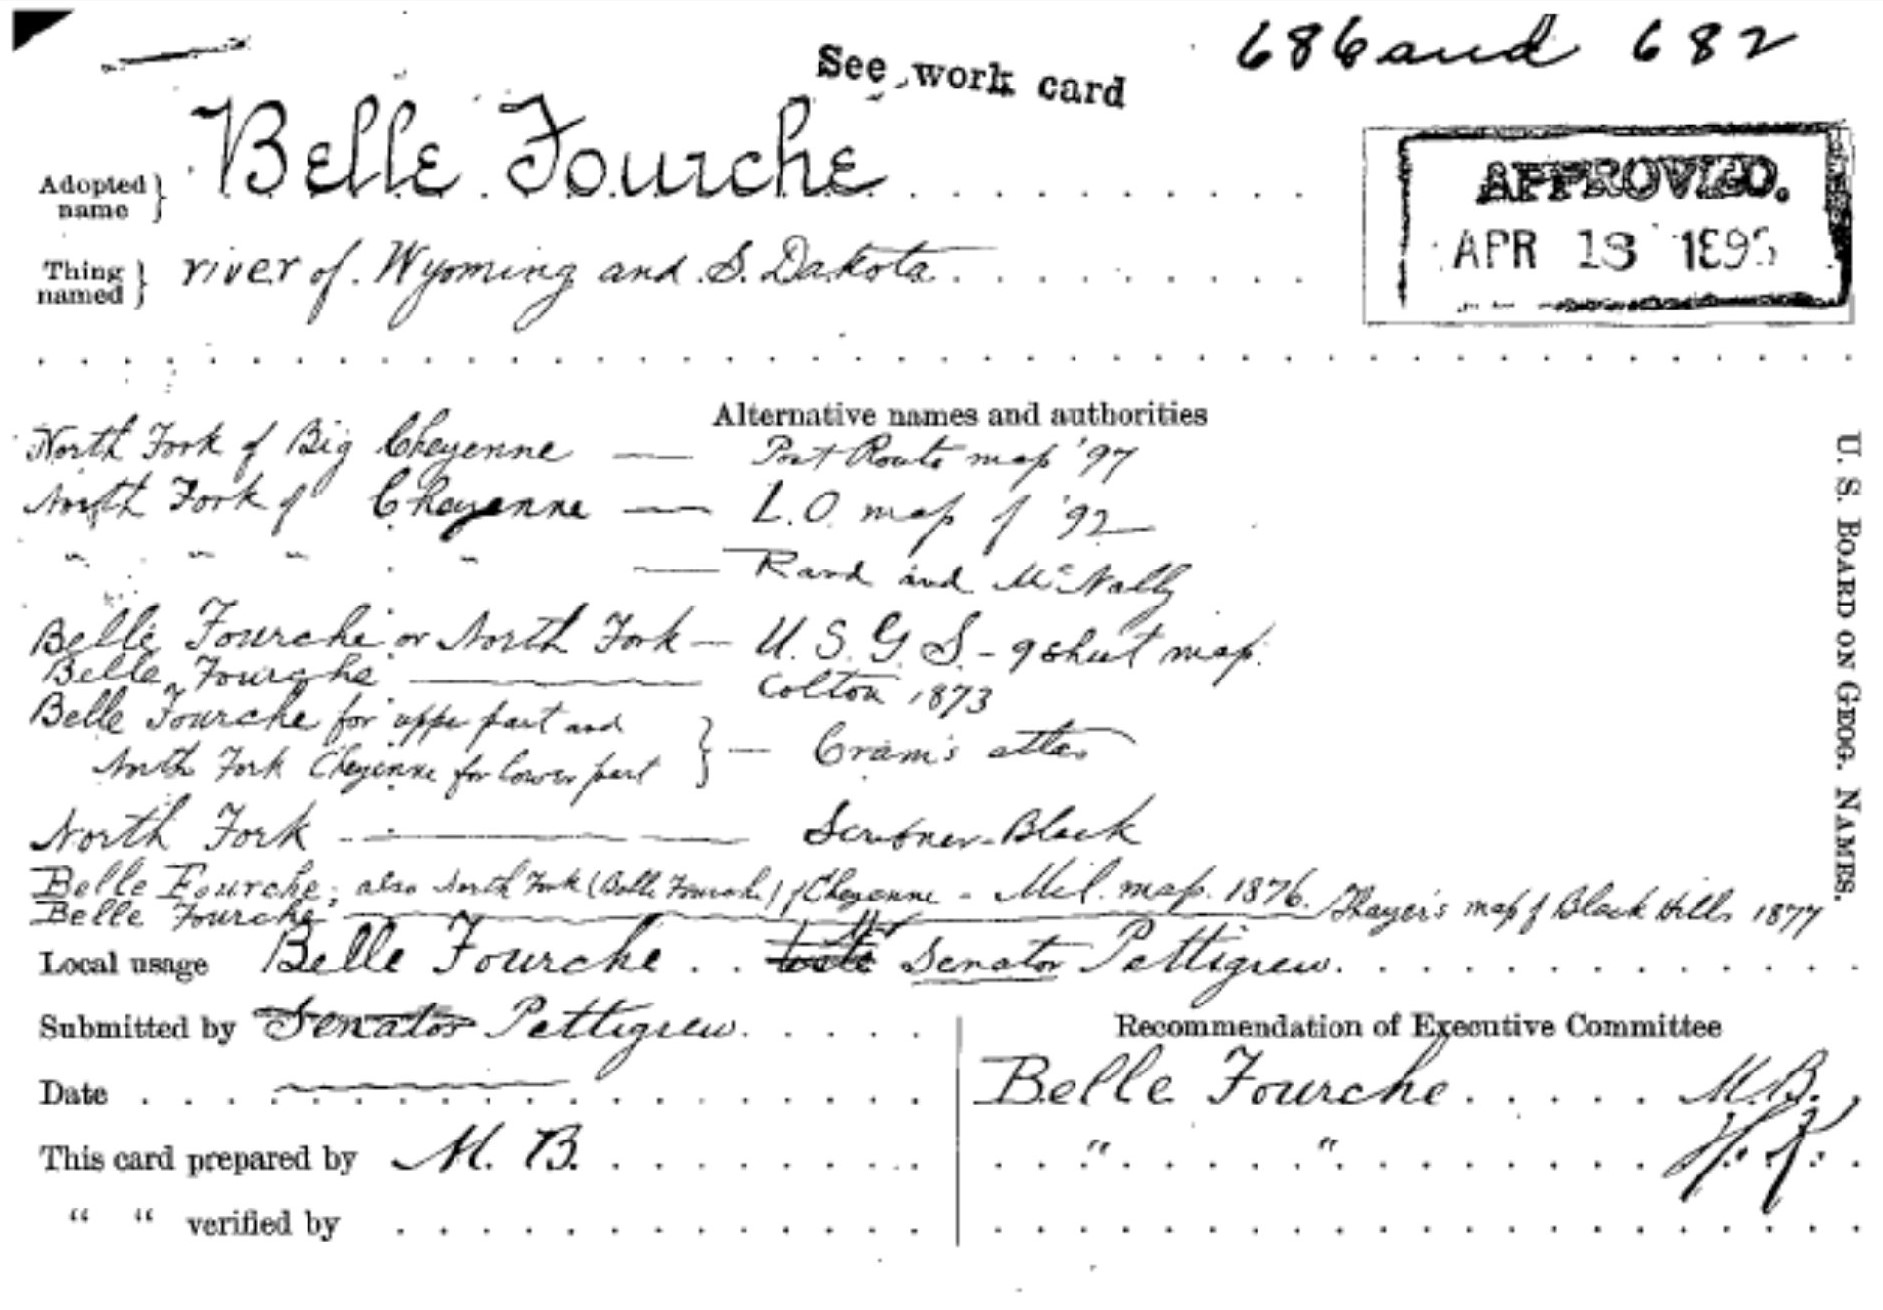 686 and 682
See work card
Adopted name } Belle Fourche
APPROVED.
APR 13 189
Thing named } river of Wyoming and S. Dakota
Alternative names and authorities
North Fork of Big Cheyenne — Post Route map '97
North Fork of Cheyenne — L.O. map of '92
" " " " — Rand and McNally
Belle Fourche or North Fork — U.S.G.S. - 9 sheet map.
Belle Fourche — Colton 1873
Belle Fourche for upper part and
North Fork Cheyenne for lower part } — Cram's atlas
North Fork — Scribner-Black
Belle Fourche; also North Fork (Belle Fourche) of Cheyenne - Mil. map. 1876.
Belle Fourche — Thayer's map of Black Hills 1877
Local usage Belle Fourche . . Senator Pettigrew.
Submitted by Senator Pettigrew.
Date
This card prepared by M. B.
" " verified by
Recommendation of Executive Committee
Belle Fourche M.B.
" "
U. S. BOARD ON GEOG. NAMES.